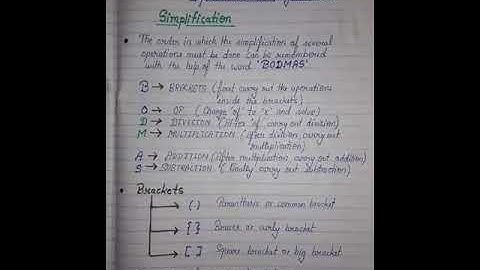 Simplification
• The order in which the simplification of several
operations must be done can be remembered
with the help of the word 'BODMAS'.
B → BRACKETS (first carry out the operations
inside the brackets)
O → OF (Change 'of' to 'x' and solve)
D → DIVISION (After 'of' carry out division)
M → MULTIPLICATION (after division, carry out
multiplication)
A → ADDITION (After multiplication, carry out addition)
S → SUBTRACTION (Finally carry out subtraction)
• Brackets
→ ( ) → Parenthesis or common bracket
→ { } → Braces or curly bracket
→ [ ] → Square bracket or big bracket